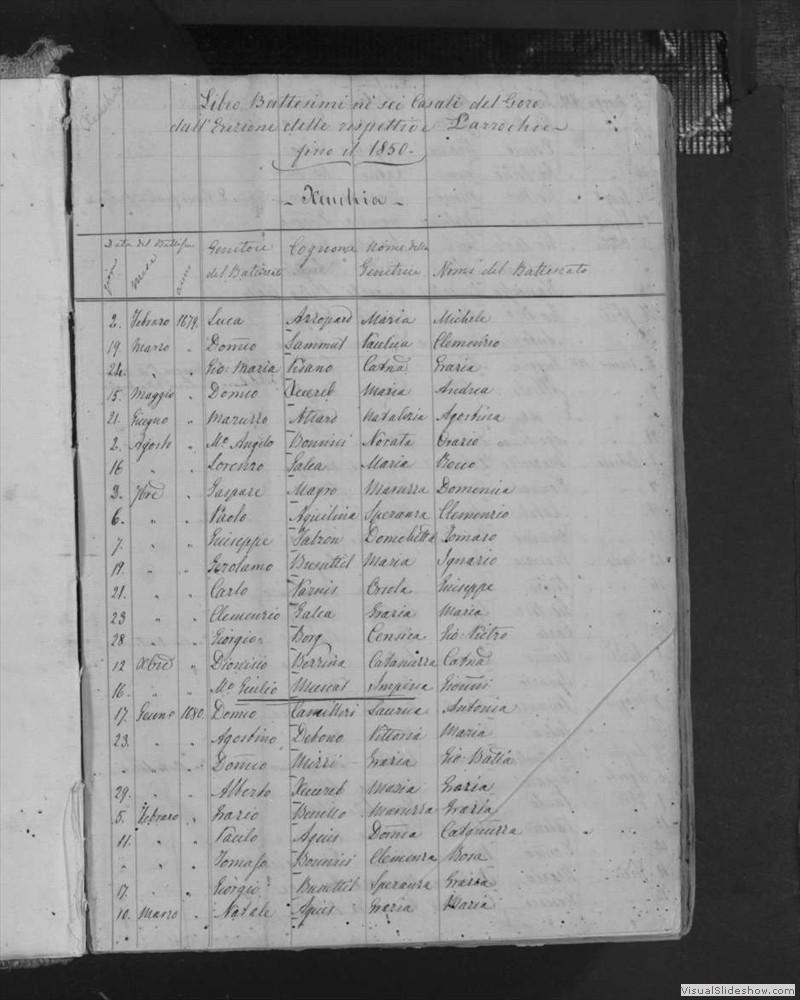 Libro Battesimi ne' sei Casali del Gozo
dall'Erezione delle rispettive Parrochie
fino il 1850.
Xeuchia
Data del Battesimo Genitore Cognome Nome della
giorni mese anno del Battezzato Genitrice Nomi del Battezzato
2. Febraro 1679. Luca Azzopard Maria Michele
19. Marzo " Domco Sammut Paulica Clemenzio
24. " " Gio Maria Pisano Catna Grazia
15. Maggio " Domco Xuereb Maria Andrea
21. Giugno " Mazuzzo Attard Natalizia Agostina
2. Agosto " Mo. Angelo Bonnici Novata Orazio
16 " " Lorenzo Galea Maria Rocco
3. 7bre " Gaspare Magro Maruzza Domenica
6. " " Paolo Aquilina Speranza Clemenzio
7. " " Giuseppe Falzon Domchitta Romaso
19. " " Gerolamo Busuttil Maria Ignazio
21. " " Carlo Varnis Orsola Giuseppe
23 " " Clemenzio Galea Grazia Maria
28 " " Giorgio Borg Censica Gio Pietro
12 Xbre " Dionisio Bezzina Catanuzza Catna
16. " " Mo. Giulio Muscat Imperia
17. Genno 1680. Domco Camilleri Laurica Antonia
23. " " Agostino Debono Vittoria Maria
" " " Domco Mizzi Grazia Gio Batta
29. " " Alberto Xuereb Masia Grazia
5. Febraro " Grazio Benello Maruzza Grazia
11. " " Paulo Agius Domca Catanuzza
" " " Tomaso Bonnici Clemenza Rosa
17. " " Giorgio Busuttil Speranza Grazia
10. Marzo " Natale Agius Grazia Maria
VisualSlideshow.com